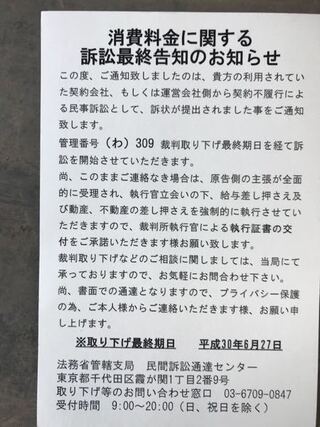 消費料金に関する
訴訟最終告知のお知らせ
この度、ご通知致しましたのは、貴方の利用されてい
た契約会社、もしくは運営会社側から契約不履行によ
る民事訴訟として、訴状が提出されました事をご通知
致します。
管理番号（わ）309 裁判取り下げ最終期日を経て訴
訟を開始させていただきます。
尚、このままご連絡なき場合は、原告側の主張が全面
的に受理され、執行官立会いの下、給与差し押さえ及
び動産、不動産の差し押さえを強制的に執行させてい
ただきますので、裁判所執行官による執行証書の交
付をご承諾いただきます様お願い致します。
裁判取り下げなどのご相談に関しましては、当局にて
承っておりますので、お気軽にお問合わせ下さい。
尚、書面での通達となりますので、プライバシー保護
の為、ご本人様からご連絡いただきます様、お願い申
し上げます。
※取り下げ最終期日 平成30年6月27日
法務省管轄支局 民間訴訟通達センター
東京都千代田区霞が関1丁目2番9号
取り下げ等のお問い合わせ窓口 03-6709-0847
受付時間 9:00~20:00（日、祝日を除く）